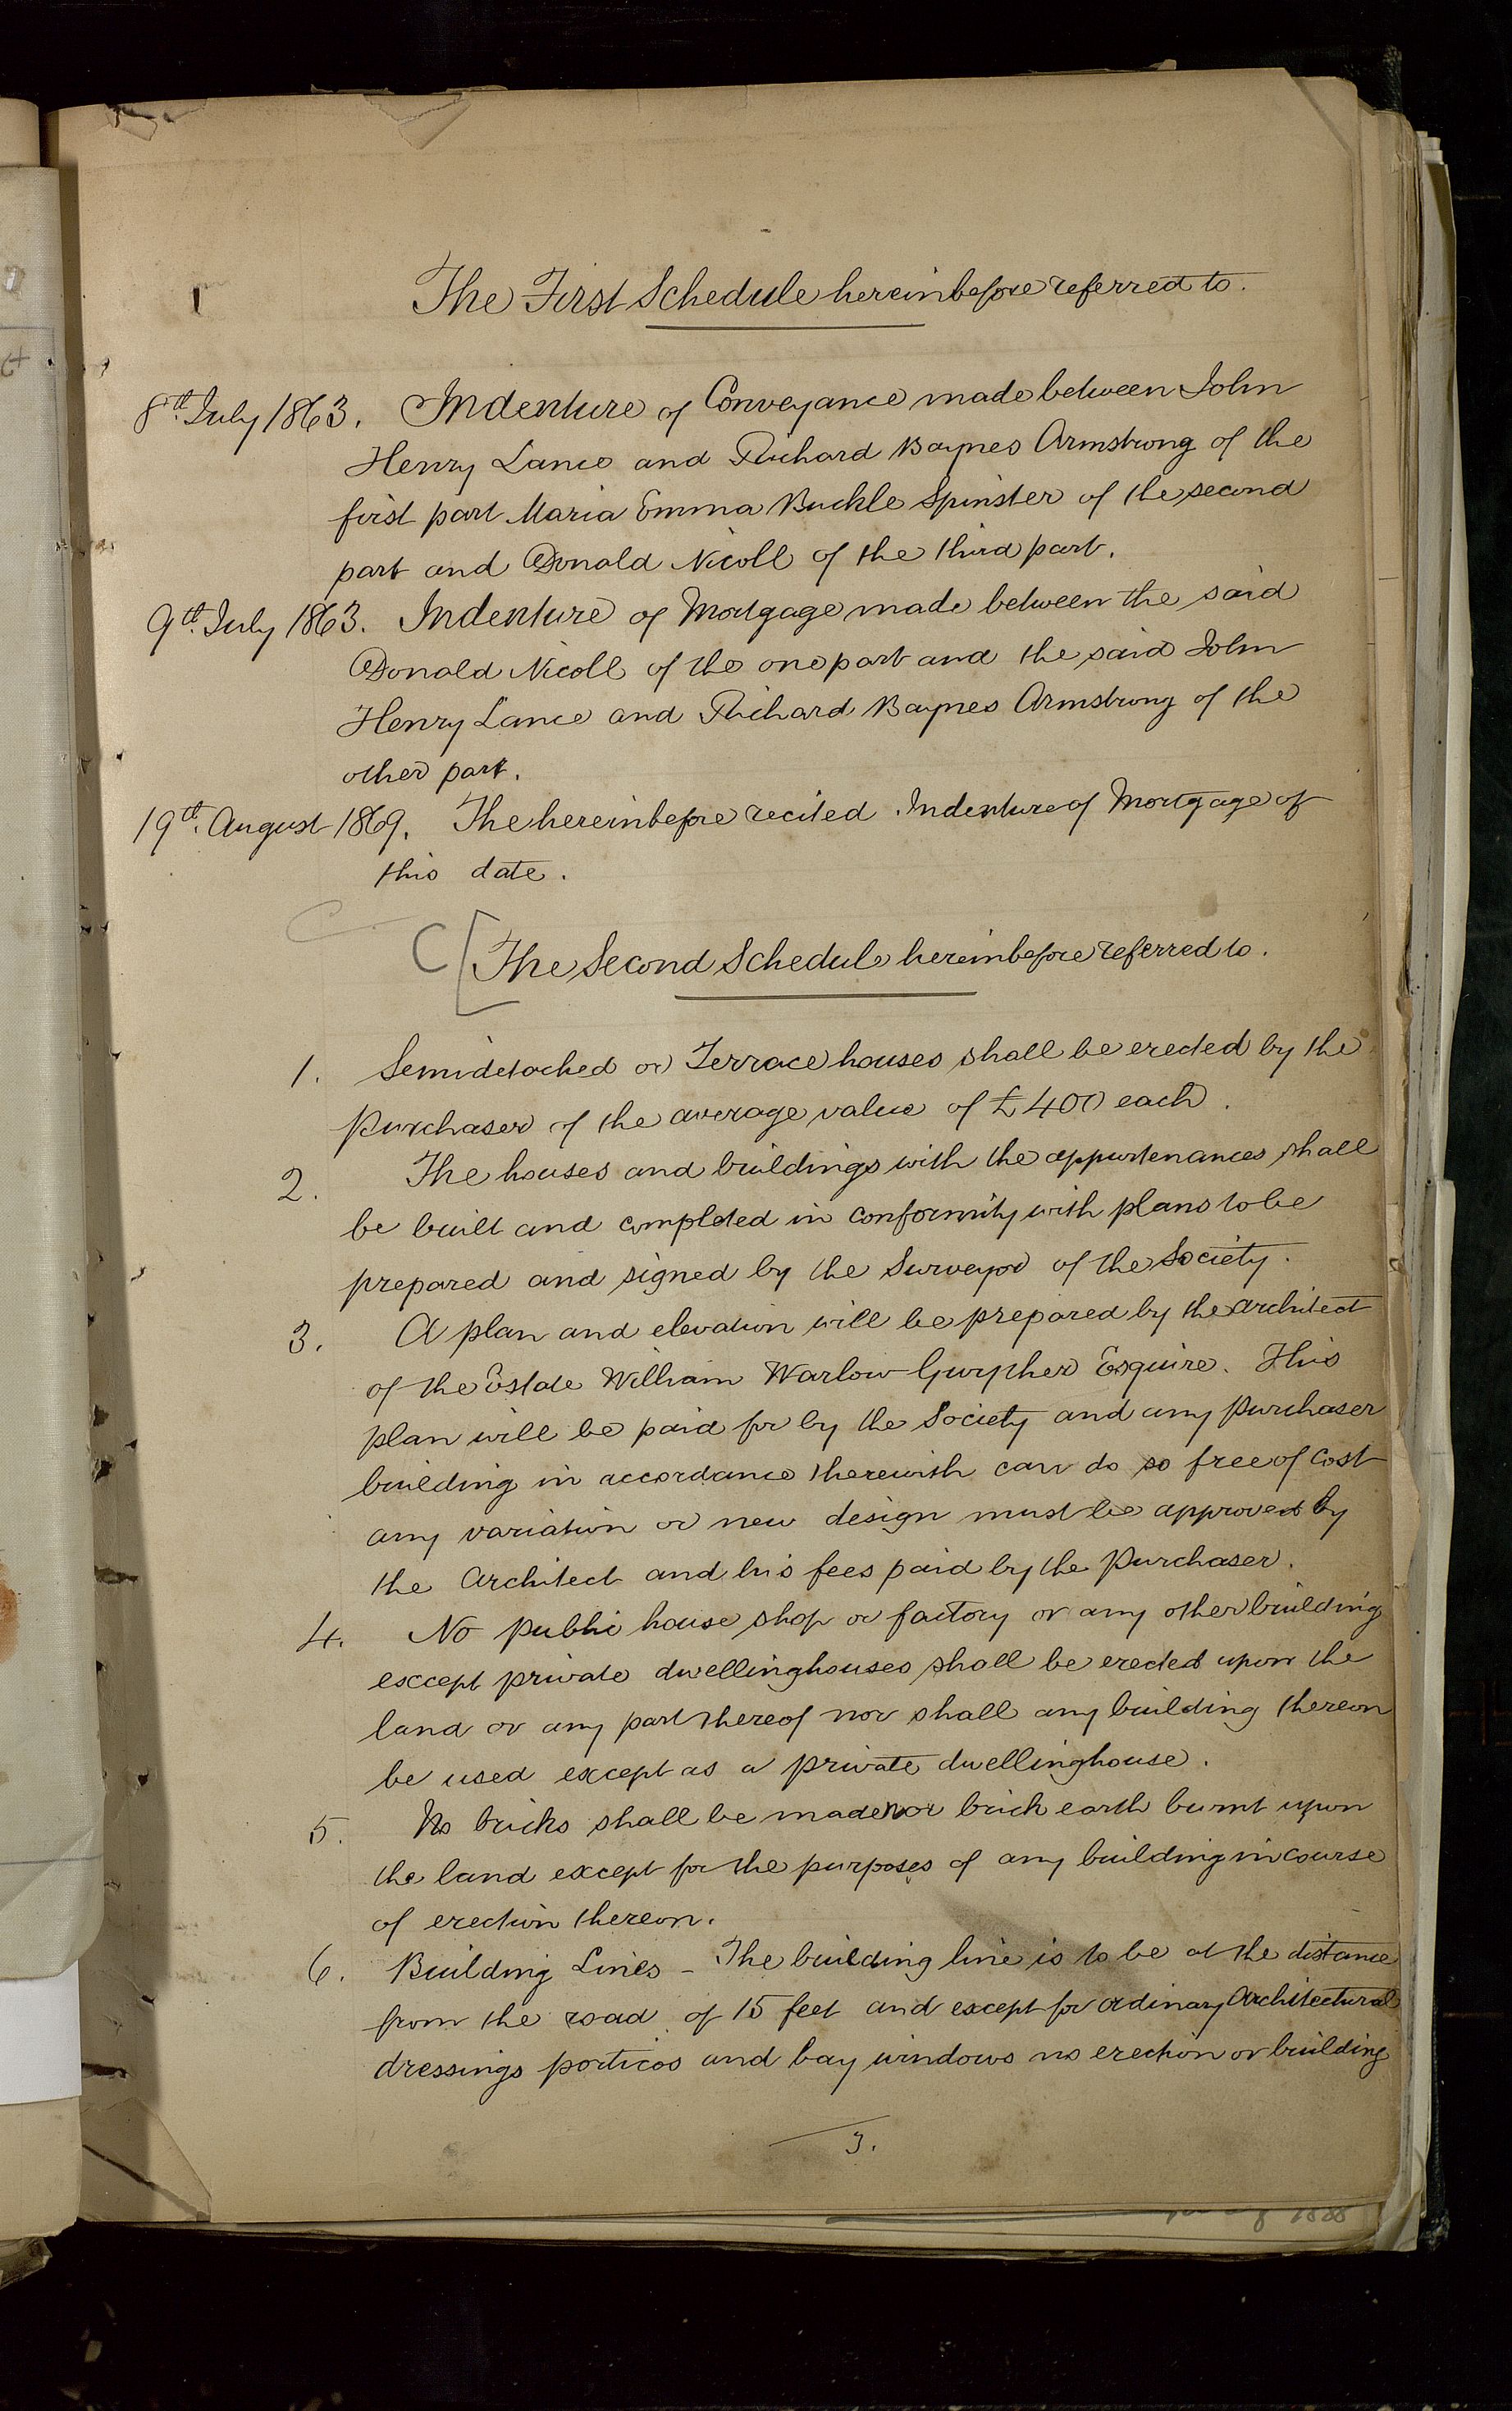 The First Schedule hereinbefore referred to.
8th July 1863. Indenture of Conveyance made between John
Henry Lance and Richard Baynes Armstrong of the
first part Maria Emma Buckle Spinster of the second
part and Donald Nicoll of the third part.
9th July 1863. Indenture of Mortgage made between the said
Donald Nicoll of the one part and the said John
Henry Lance and Richard Baynes Armstrong of the
other part.
19th August 1869. The hereinbefore recited Indenture of Mortgage of
this date.
C [The Second Schedule hereinbefore referred to.
1. Semidetached or Terrace houses shall be erected by the
purchaser of the average value of £400 each.
2. The houses and buildings with the appurtenances shall
be built and completed in conformity with plans to be
prepared and signed by the Surveyor of the Society.
3. A plan and elevation will be prepared by the architect
of the Estate William Warlow Gwyther Esquire. This
plan will be paid for by the Society and any purchaser
building in accordance therewith can do so free of cost
any variation or new design must be approved by
the Architect and his fees paid by the Purchaser.
4. No public house shop or factory or any other building
except private dwellinghouses shall be erected upon the
land or any part thereof nor shall any building thereon
be used except as a private dwellinghouse.
5. No bricks shall be made nor brick earth burnt upon
the land except for the purposes of any building in course
of erection thereon.
6. Building Lines - The building line is to be at the distance
from the road of 15 feet and except for ordinary Architectural
dressings porticos and bay windows no erection or building
3.